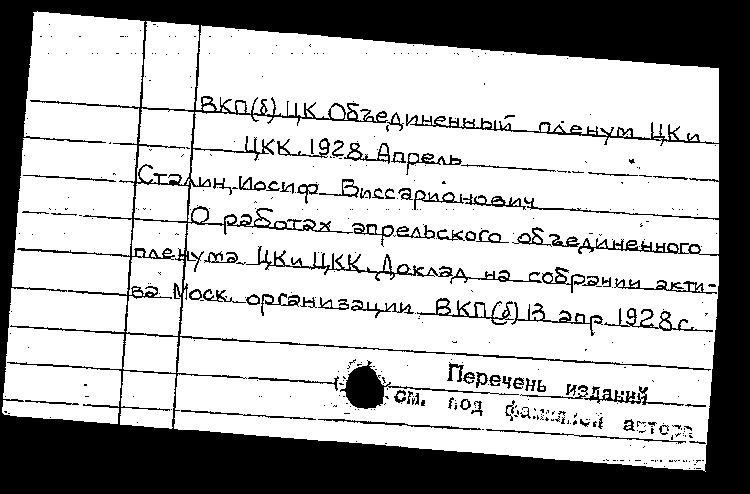 ВКП(б) ЦК. Объединенный пленум ЦК и
ЦКК. 1928. Апрель
Сталин, Иосиф Виссарионович
О работах апрельского объединенного
пленума ЦК и ЦКК. Доклад на собрании акти-
ва Моск. организации ВКП(б) 13 апр. 1928 г.
Перечень изданий
см. под фамилией автора